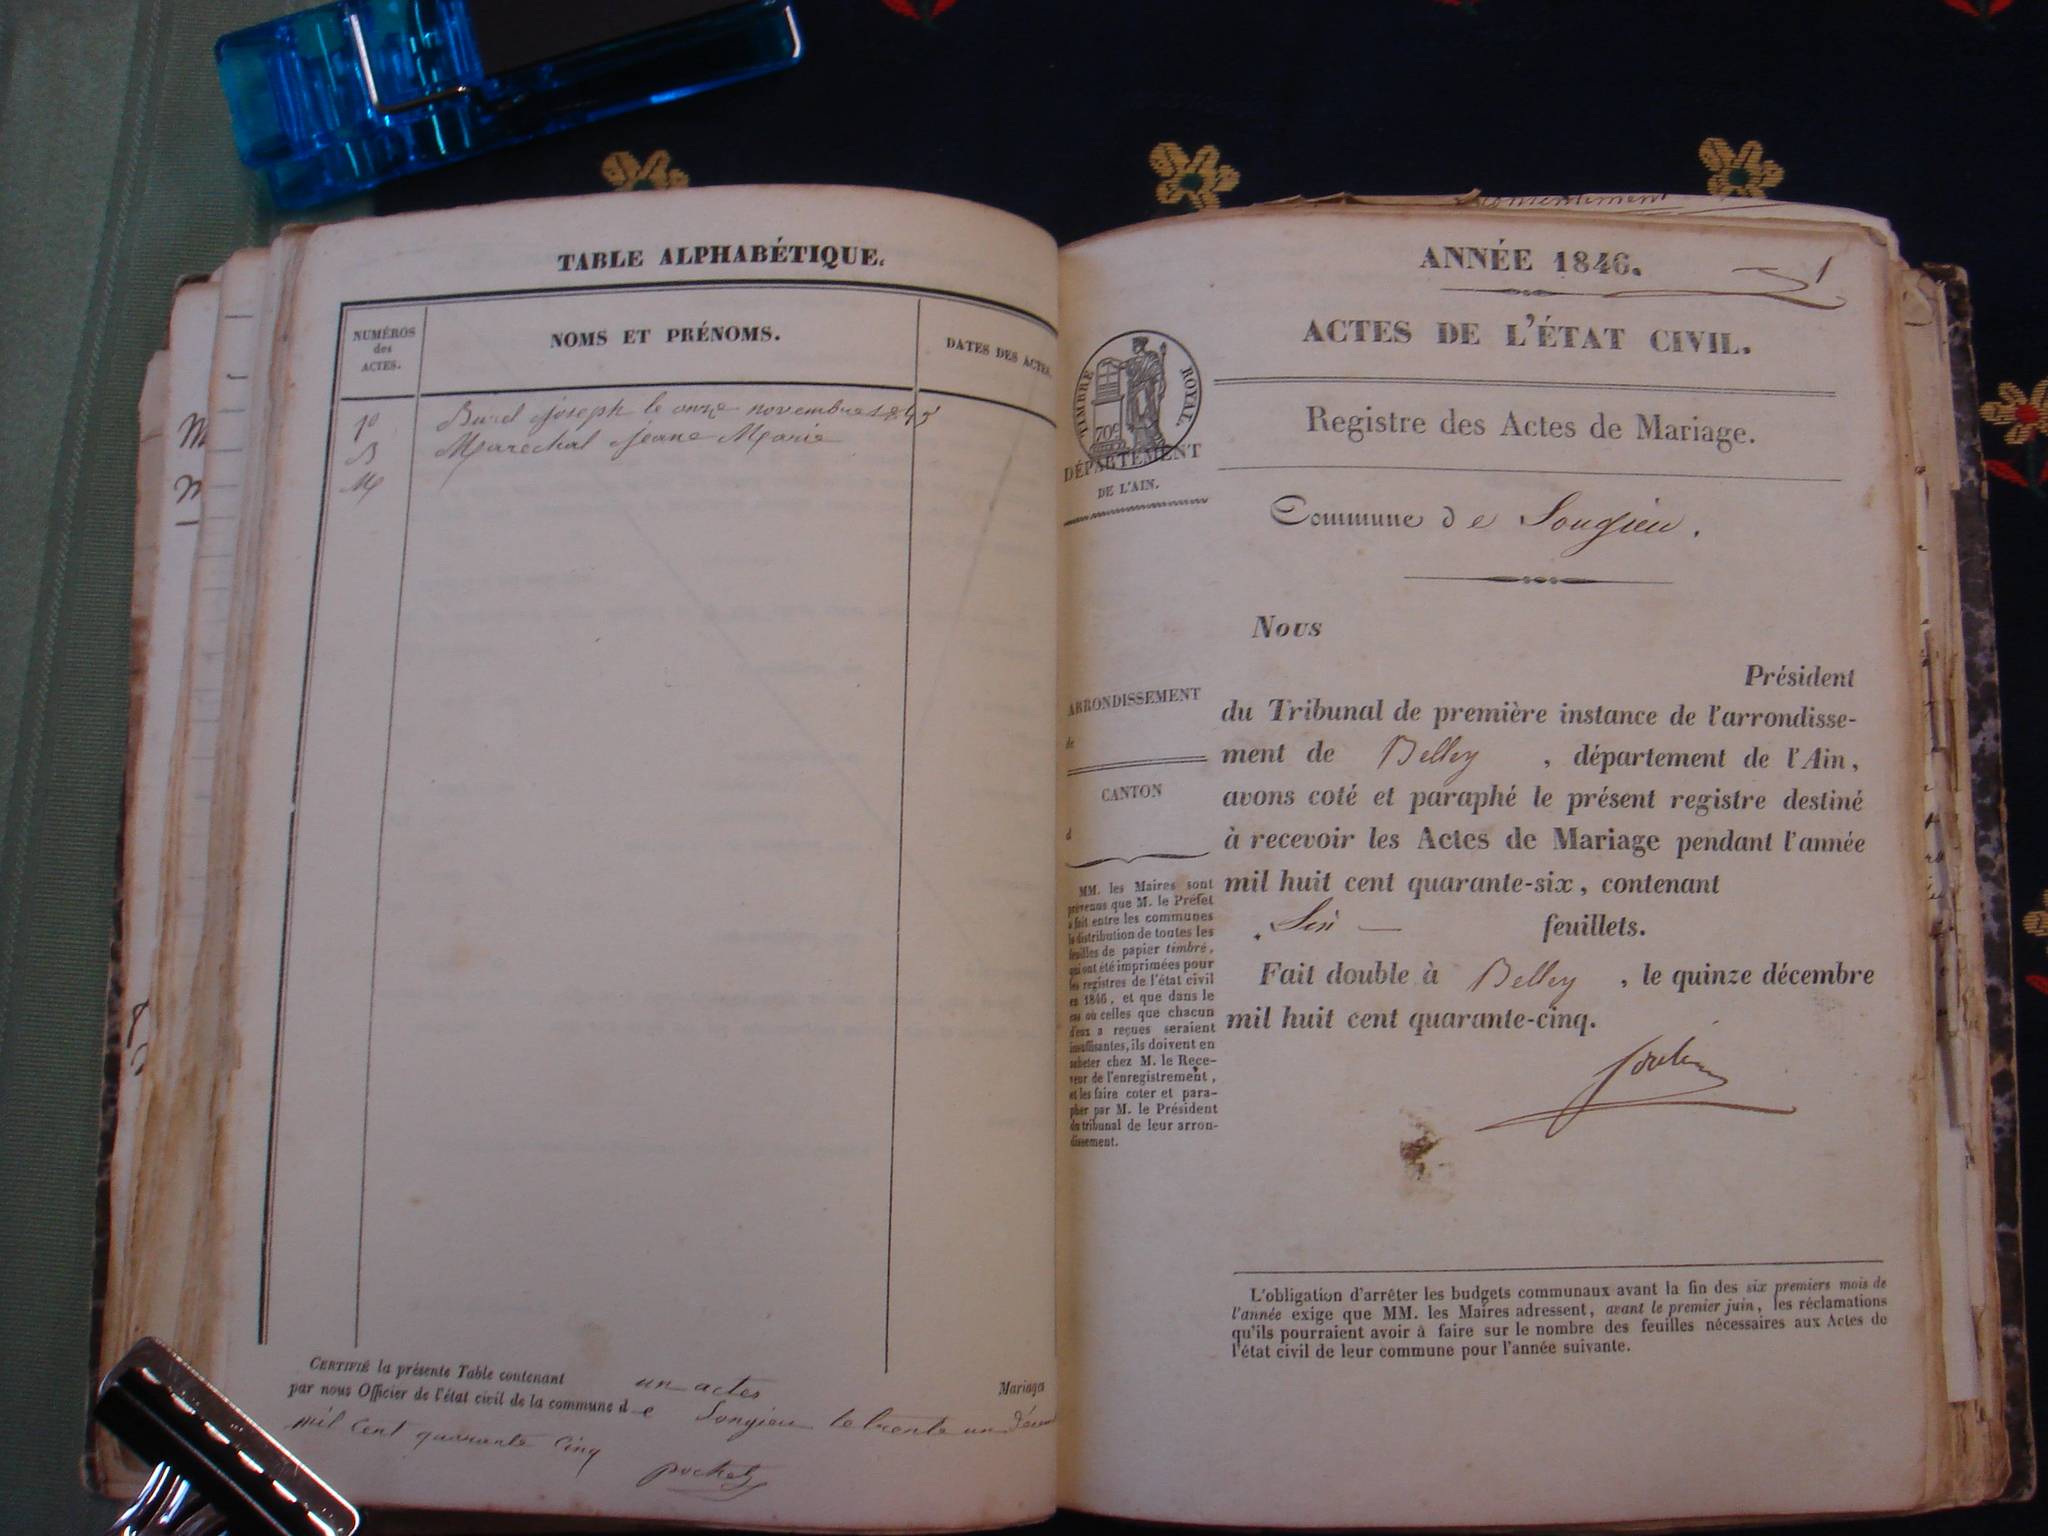 TABLE ALPHABÉTIQUE.
NUMÉROS
des
ACTES.
NOMS ET PRÉNOMS.
DATES DES ACTES.
1o Burel joseph le onze novembre 1845
B Marechal jeane Marie
M
CERTIFIÉ la présente Table contenant un actes Mariages
par nous Officier de l'état civil de la commune d e Songieu le trente un décem
mil cent quarante cinq
pochet
ANNÉE 1846. 1
ACTES DE L'ÉTAT CIVIL.
TIMBRE ROYAL.
70c
DÉPARTEMENT
DE L'AIN.
Registre des Actes de Mariage.
Commune d e Songieu.
ARRONDISSEMENT
de
CANTON
d
MM. les Maires sont
prévenus que M. le Préfet
a fait entre les communes
la distribution de toutes les
feuilles de papier timbré,
qui ont été imprimées pour
les registres de l'état civil
en 1846, et que dans le
cas où celles que chacun
d'eux a reçues seraient
insuffisantes, ils doivent en
acheter chez M. le Rece-
veur de l'enregistrement,
et les faire coter et para-
pher par M. le Président
du tribunal de leur arron-
dissement.
Nous
Président
du Tribunal de première instance de l'arrondisse-
ment de Belley, département de l'Ain,
avons coté et paraphé le présent registre destiné
à recevoir les Actes de Mariage pendant l'année
mil huit cent quarante-six, contenant
Six feuillets.
Fait double à Belley, le quinze décembre
mil huit cent quarante-cinq.
L'obligation d'arrêter les budgets communaux avant la fin des six premiers mois de
l'année exige que MM. les Maires adressent, avant le premier juin, les réclamations
qu'ils pourraient avoir à faire sur le nombre des feuilles nécessaires aux Actes de
l'état civil de leur commune pour l'année suivante.